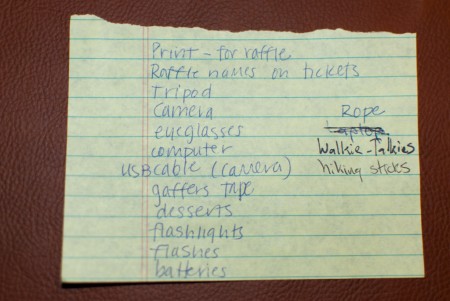 Print - for raffle
Raffle names on tickets
Tripod
Camera
eyeglasses
computer
USB cable (camera)
gaffers tape
desserts
flashlights
flashes
batteries
Rope
Laptop
Walkie-Talkies
hiking sticks